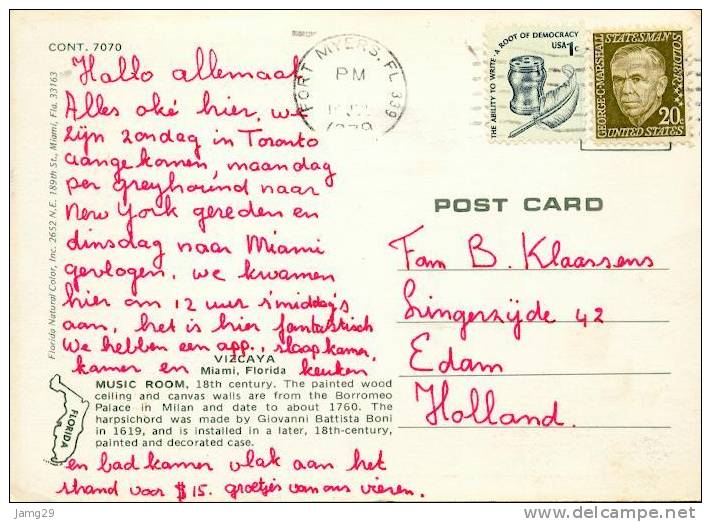 CONT. 7070
Hallo allemaal
Alles oké hier, we
zijn zondag in Toronto
aangekomen, maandag
per greyhound naar
New York gereden en
dinsdag naar Miami
gevlogen, we kwamen
hier om 12 uur s'middags
aan, het is hier fantastisch
We hebben een app., slaapkamer,
kamer en keuken
VIZCAYA
Miami, Florida
MUSIC ROOM, 18th century. The painted wood
ceiling and canvas walls are from the Borromeo
Palace in Milan and date to about 1760. The
harpsichord was made by Giovanni Battista Boni
in 1619, and is installed in a later, 18th-century,
painted and decorated case.
en badkamer vlak aan het
strand voor $15. groetjes van ons vieren.
FLORIDA
Florida Natural Color, Inc. 2652 N.E. 189th St., Miami, Fla. 33163
FORT MYERS, FL 339
PM
THE ABILITY TO WRITE • A ROOT OF DEMOCRACY
USA 1c
GEORGE C. MARSHALL STATESMAN SOLDIER
20c
UNITED STATES
POST CARD
Fam B. Klaassens
Lingerzijde 42
Edam
Holland.
Jamg29
www.delcampe.net